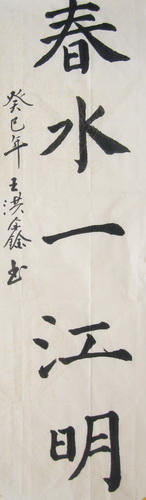 春水一江明
癸巳年王洪鑫书